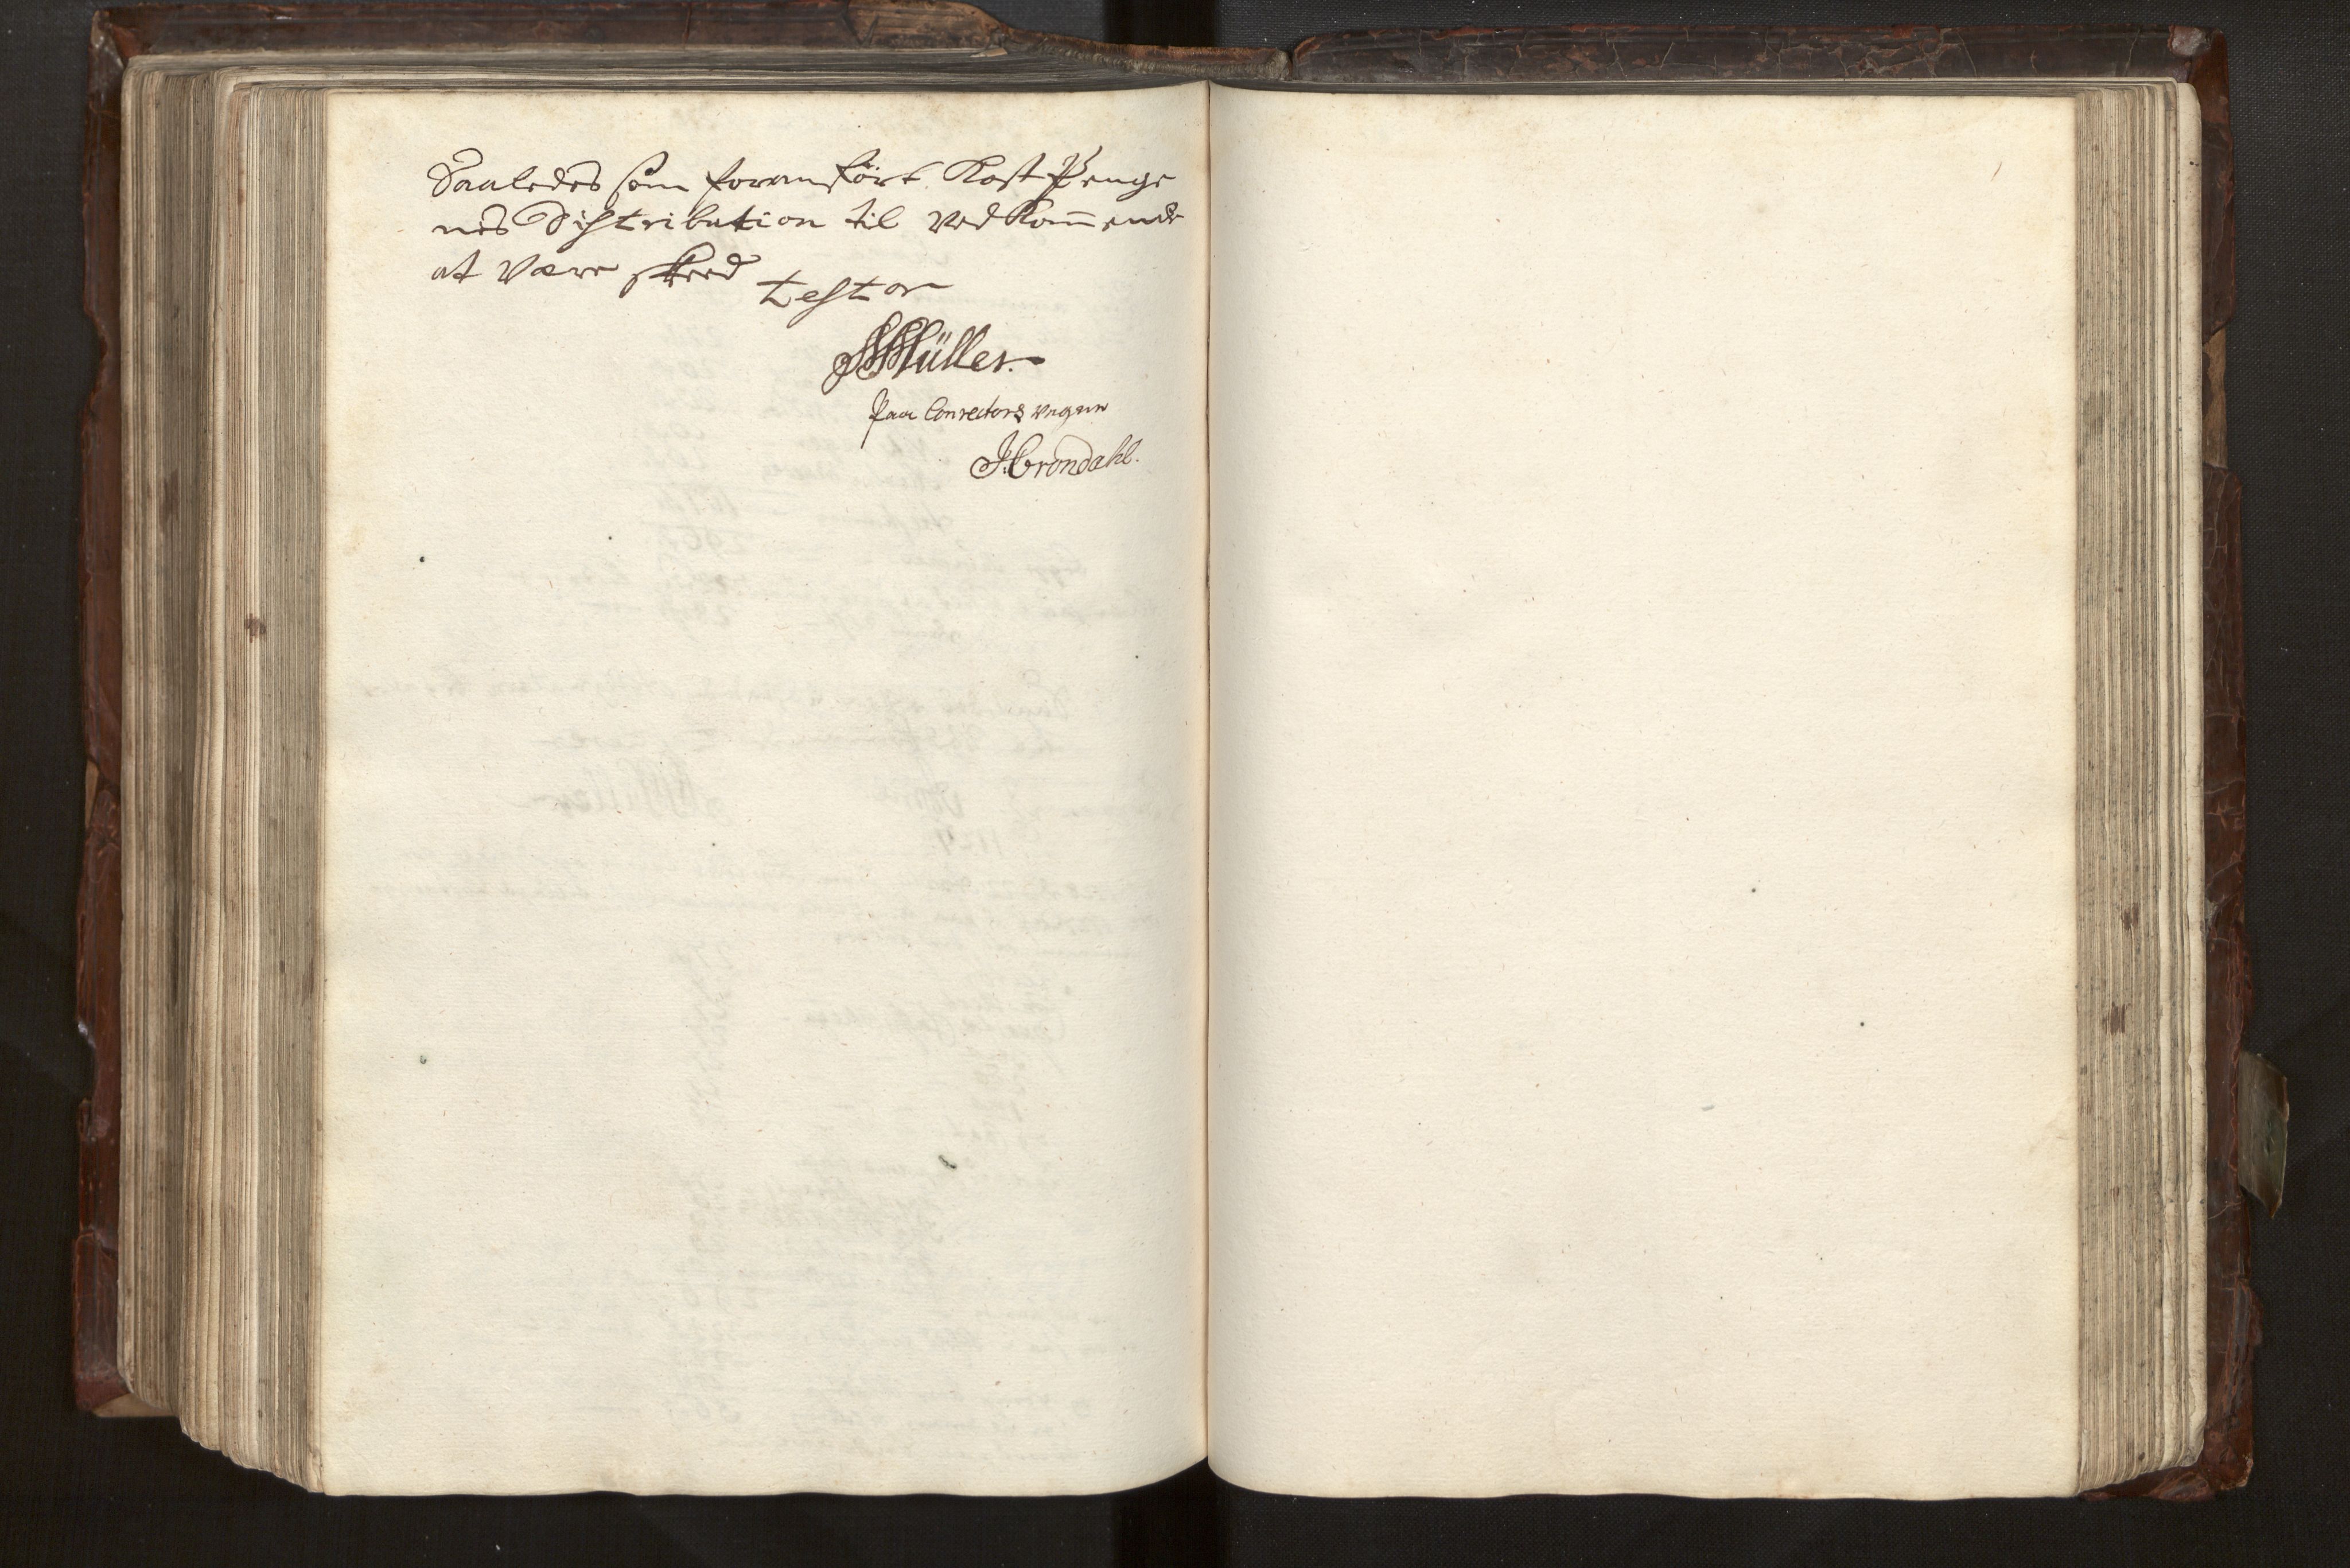 Saaledes som foranført Kost Penge
nes Distribution til Vedkom̄ende
at være skeed
testor
JMüller.
Paa Conrectors vegne
J. Crondahl.